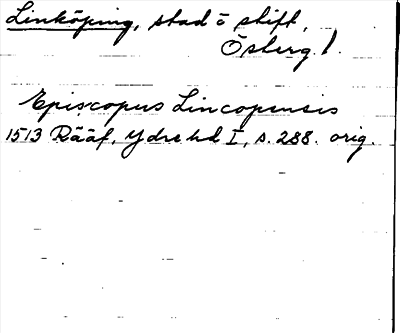 Linköping, stad o stift,
Österg. l.
Episcopus Lincopensis
1513 Rääf, Ydre hd I, s. 288. orig.